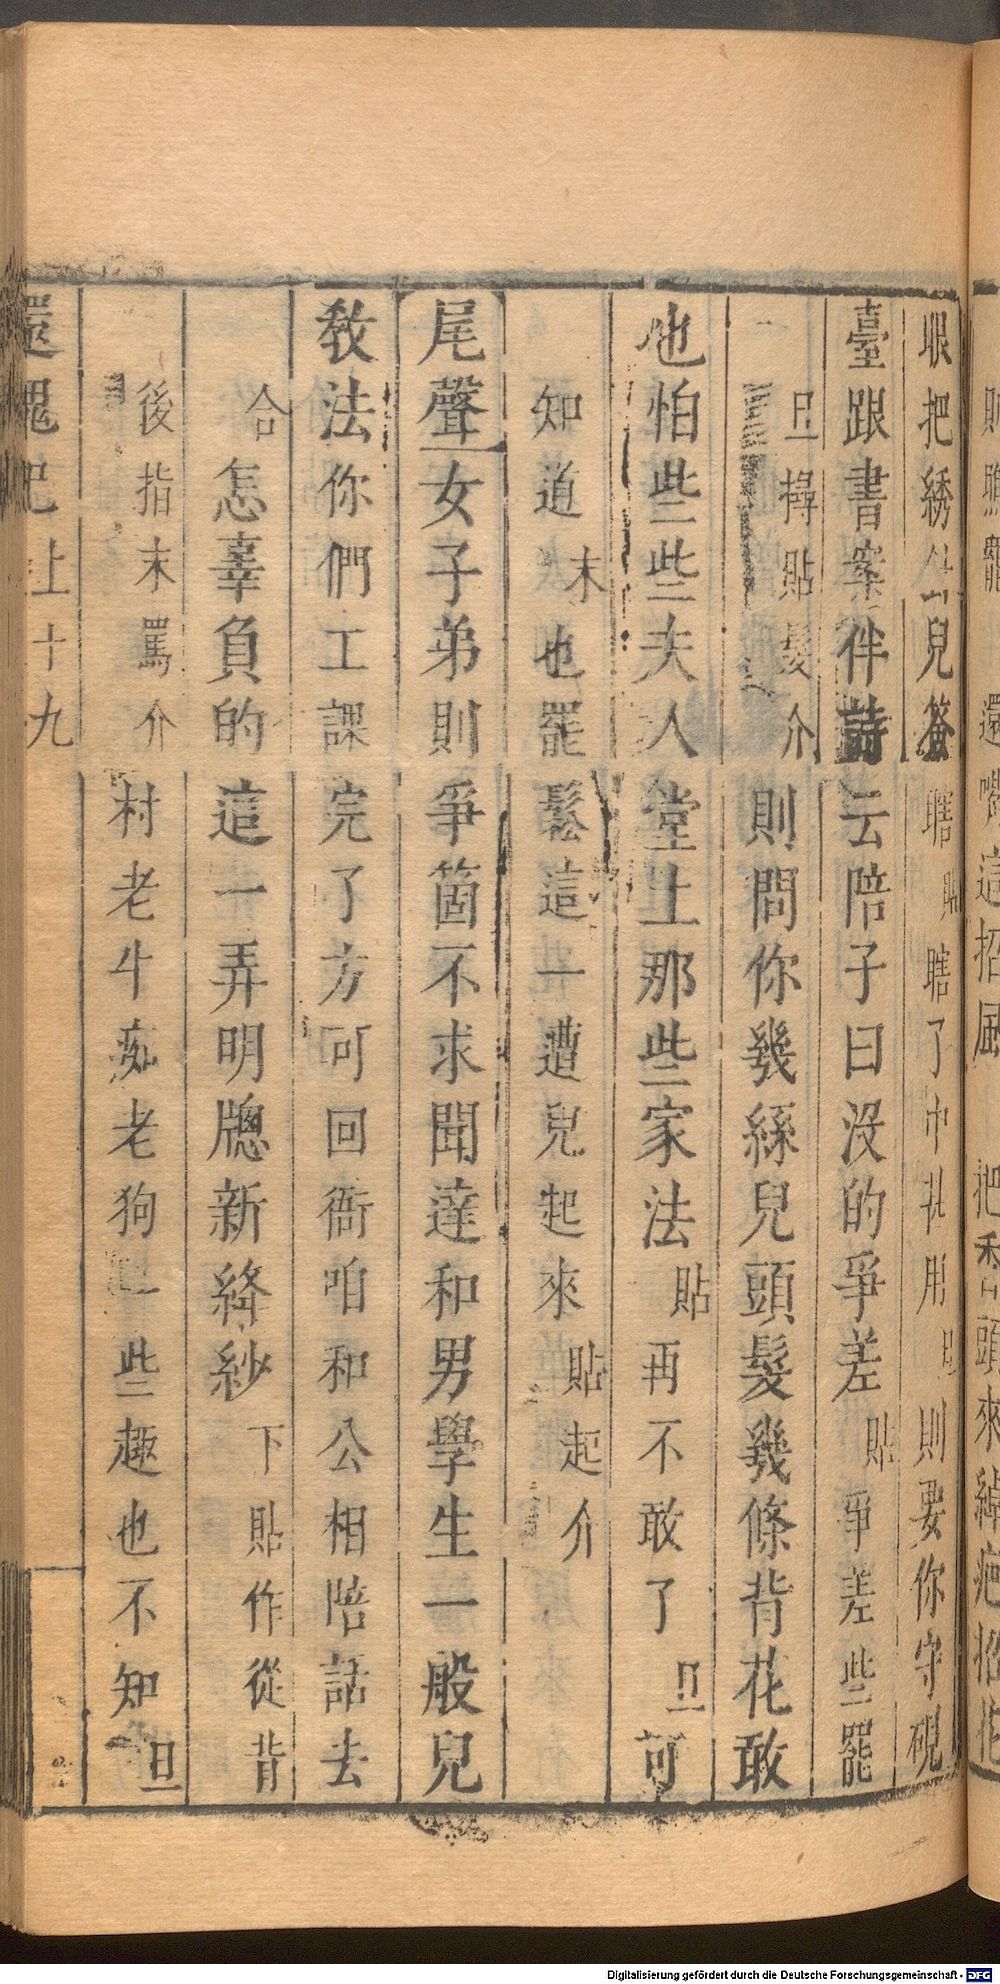 眼把綉 兒簽瞎貼瞎了中 用旦則要你守硯
臺跟書案伴詩云陪子曰沒的爭差貼爭差些罷
旦撏貼髮介則問你幾絲兒頭髮幾條背花敢
也怕些些夫人堂上那些家法貼再不敢了旦可
知道末也罷鬆這一遭兒起來貼起介
尾聲女子弟則爭箇不求聞達和男學生一般兒
教法你們工課完了方可回衙咱和公相陪話去
合怎辜負的這一弄明牕新絳紗下貼作從背
後指末罵介村老牛痴老狗一些趣也不知旦
還魂記上十九
Digitalisierung gefördert durch die Deutsche Forschungsgemeinschaft - DFG